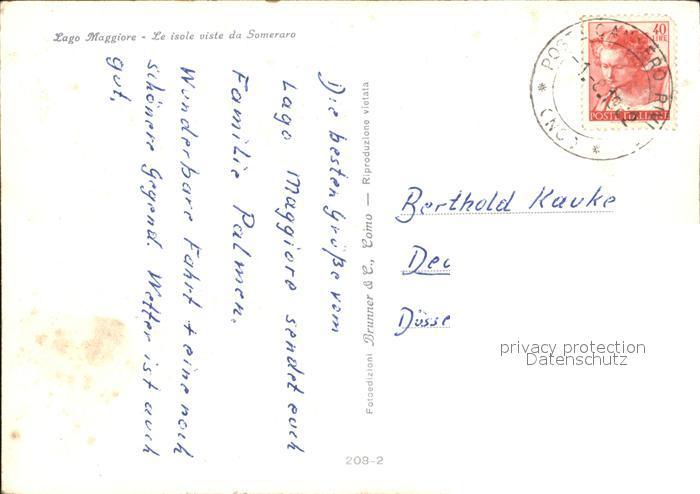 Lago Maggiore - Le isole viste da Someraro
Die besten Grüße vom
Lago Maggiore sendet euch
Familie Palmen.
Wunderbare Fahrt + eine noch
schönere Gegend. Wetter ist auch
gut.
Fotoedizioni Brunner & C., Como — Riproduzione vietata
208-2
40
LIRE
POSTE ITALIANE
Berthold Kauke
Düsse
privacy protection
Datenschutz